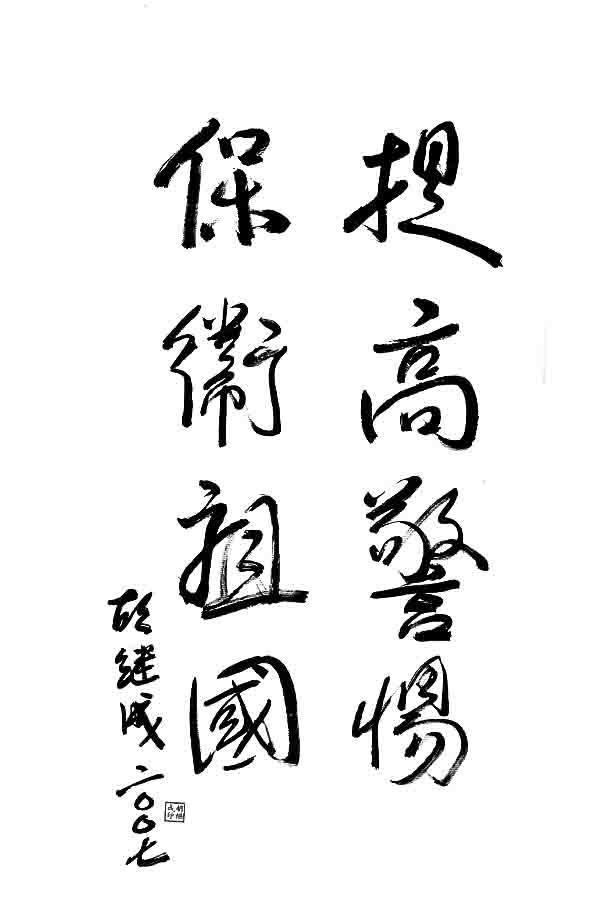 提高警惕
保衛祖國
胡继成二〇〇七